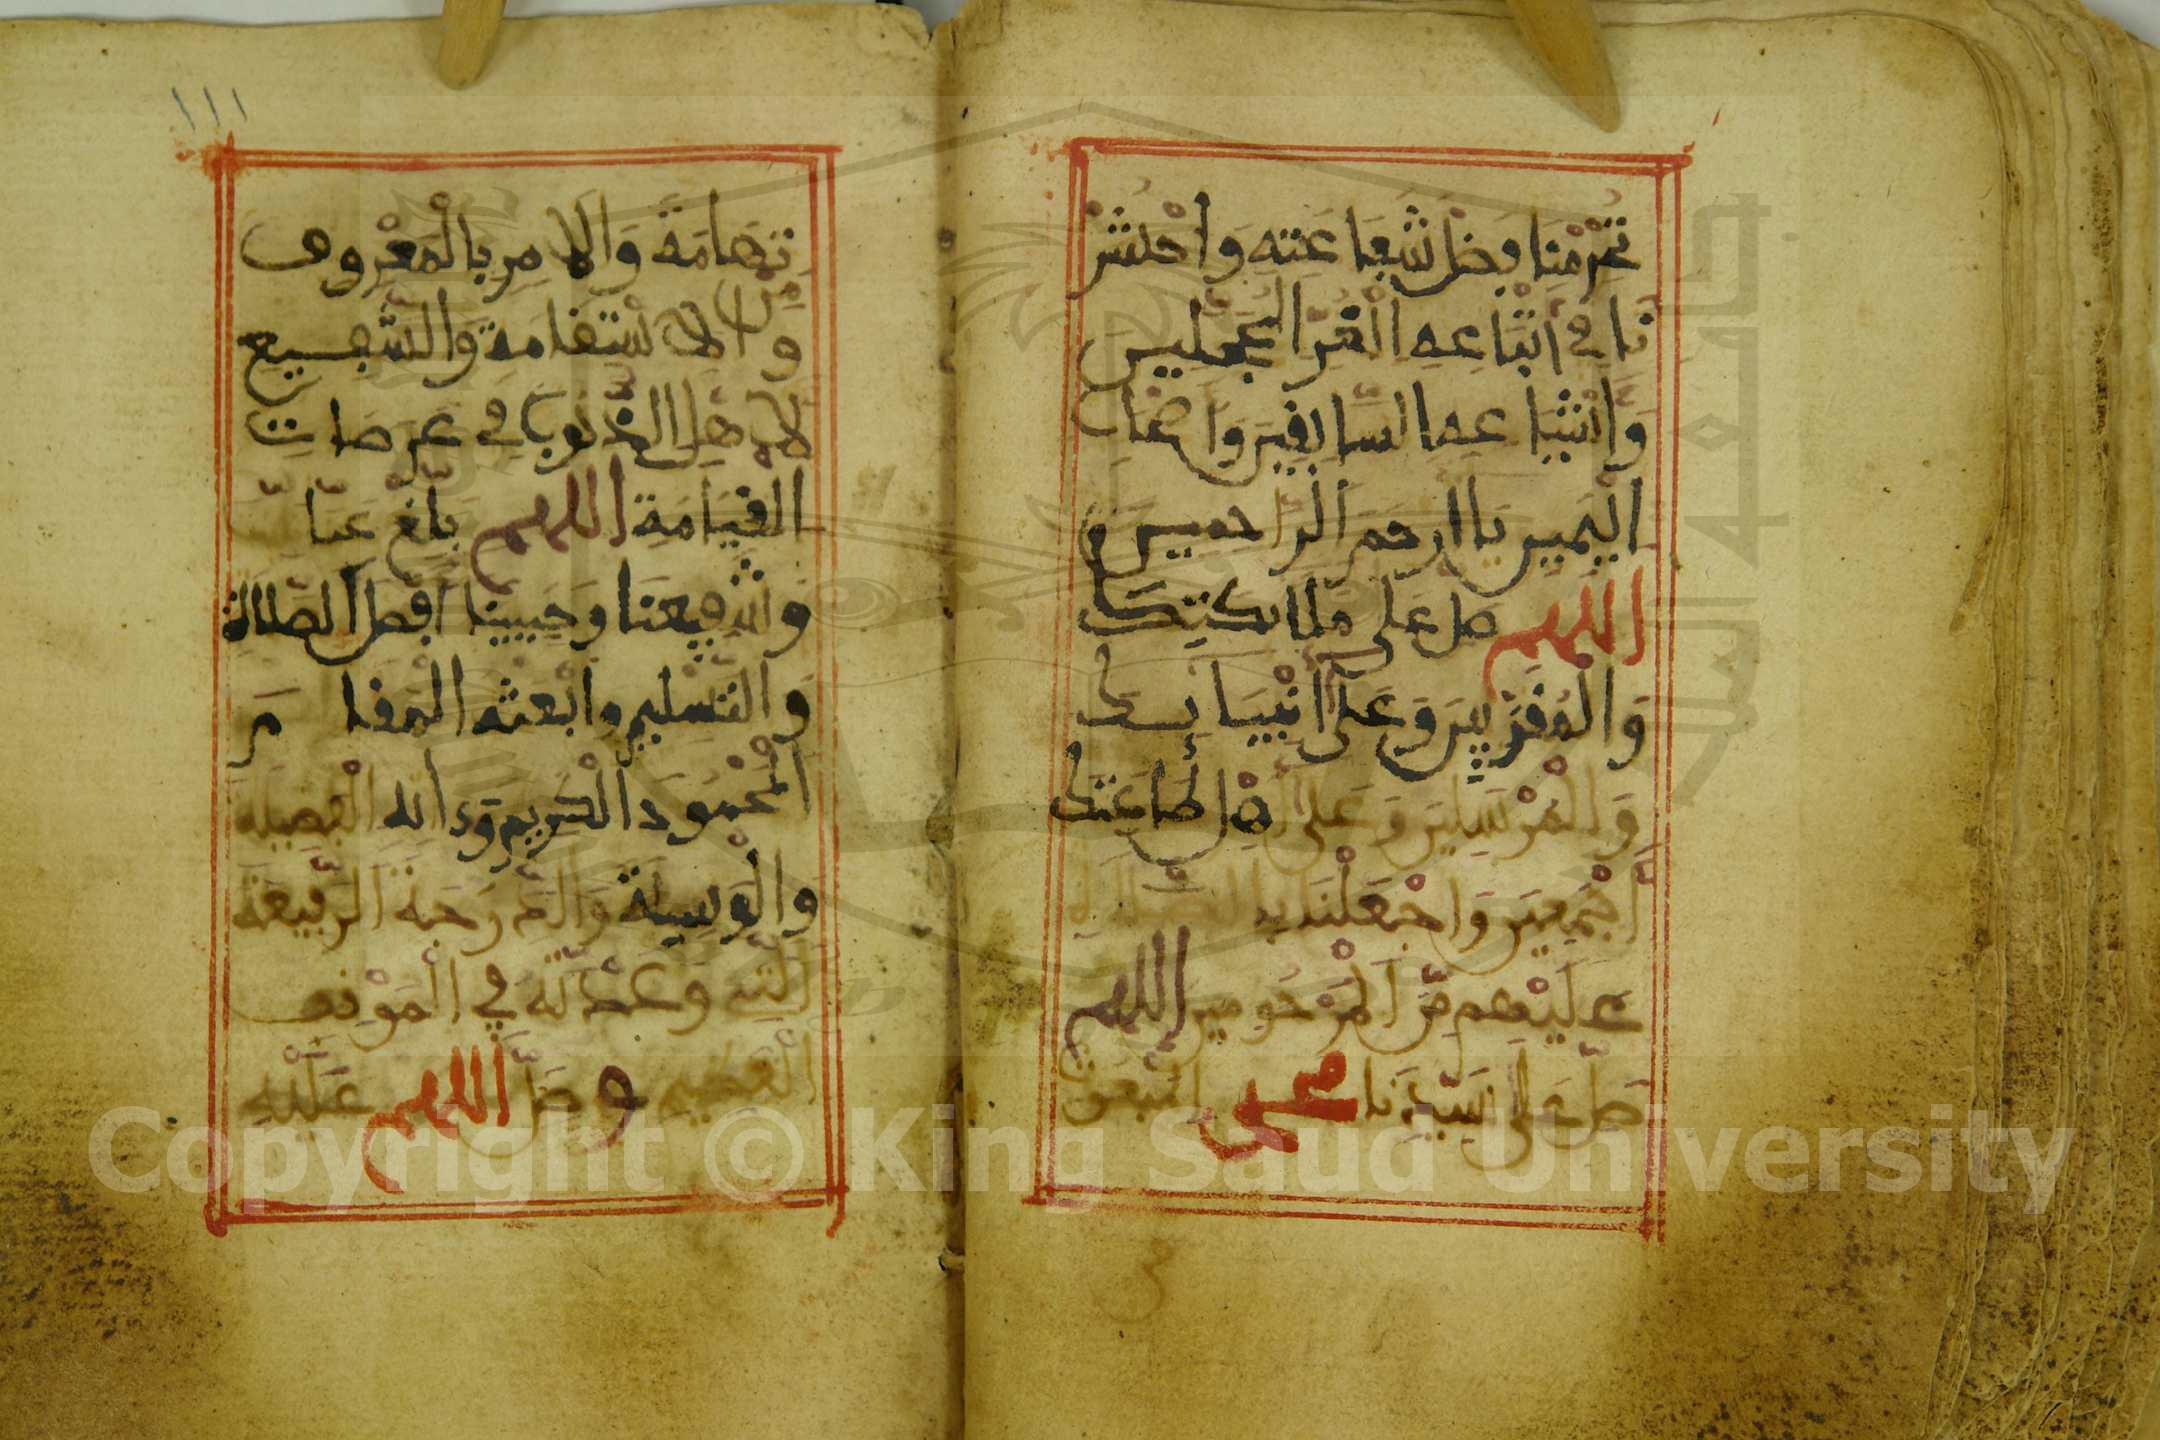 تحرمنا فضل شفاعته واحشر
نا في أتباعه الغر المحجلين
وأشياعه السابقين وأصحاب
اليمين يا أرحم الراحمين
اللهم صل على ملائكتك
والمقربين وعلى أنبيائك
والمرسلين وعلى أهل طاعتك
أجمعين واجعلنا بالصلاة
عليهم من المرحومين اللهم
صل على سيدنا محمد المبعوث
١١١
من تهامة والامر بالمعروف
والاستقامة والشفيع
لأهل الذنوب في عرصات
القيامة اللهم بلغ عنا
وشفيعنا وحبيبنا أفضل الصلاة
والتسليم وابعثه المقام
المحمود الكريم وءاته الفضيلة
والوسيلة والدرجة الرفيعة
التي وعدته في الموقف
العظيم وصل اللهم عليه
Copyright © King Saud University